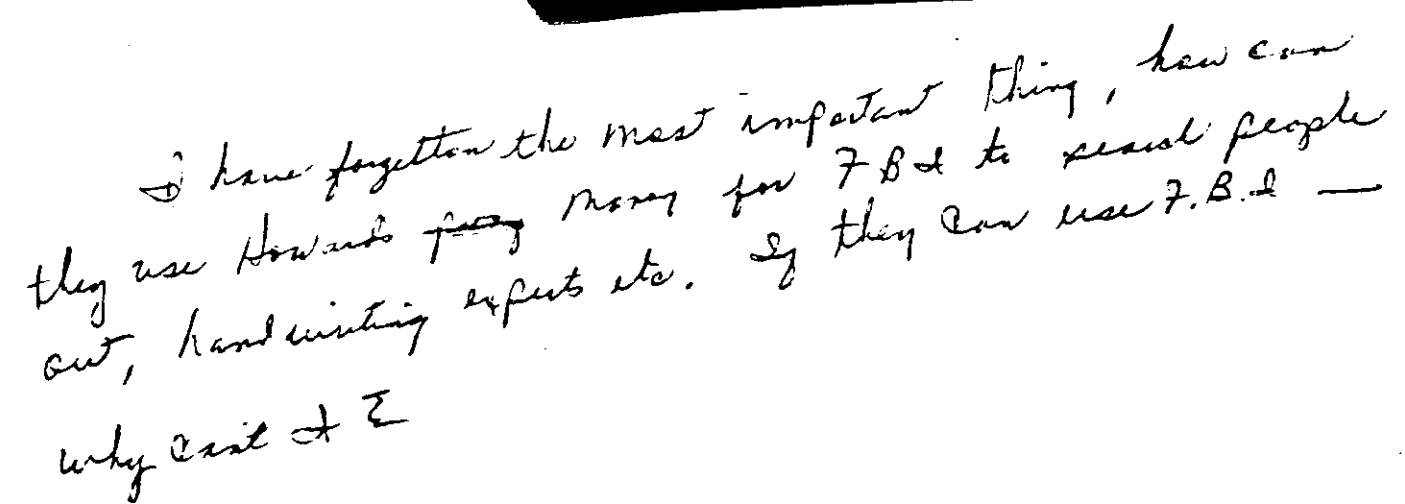 I have forgetton the most important thing, how can
they use Howards money for F B I to search people
out, handwriting experts etc. If they can use F.B.I —
why can't I